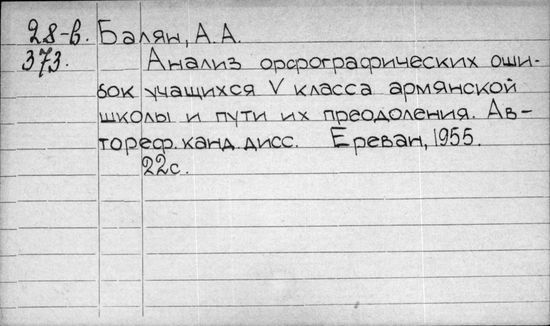 28-в. Балян, А.А.
373. Анализ орфрографических оши-
бок учащихся V класса армянской
школы и пути их преодоления. Ав-
тореф. канд. дисс. Ереван, 1955.
22с.